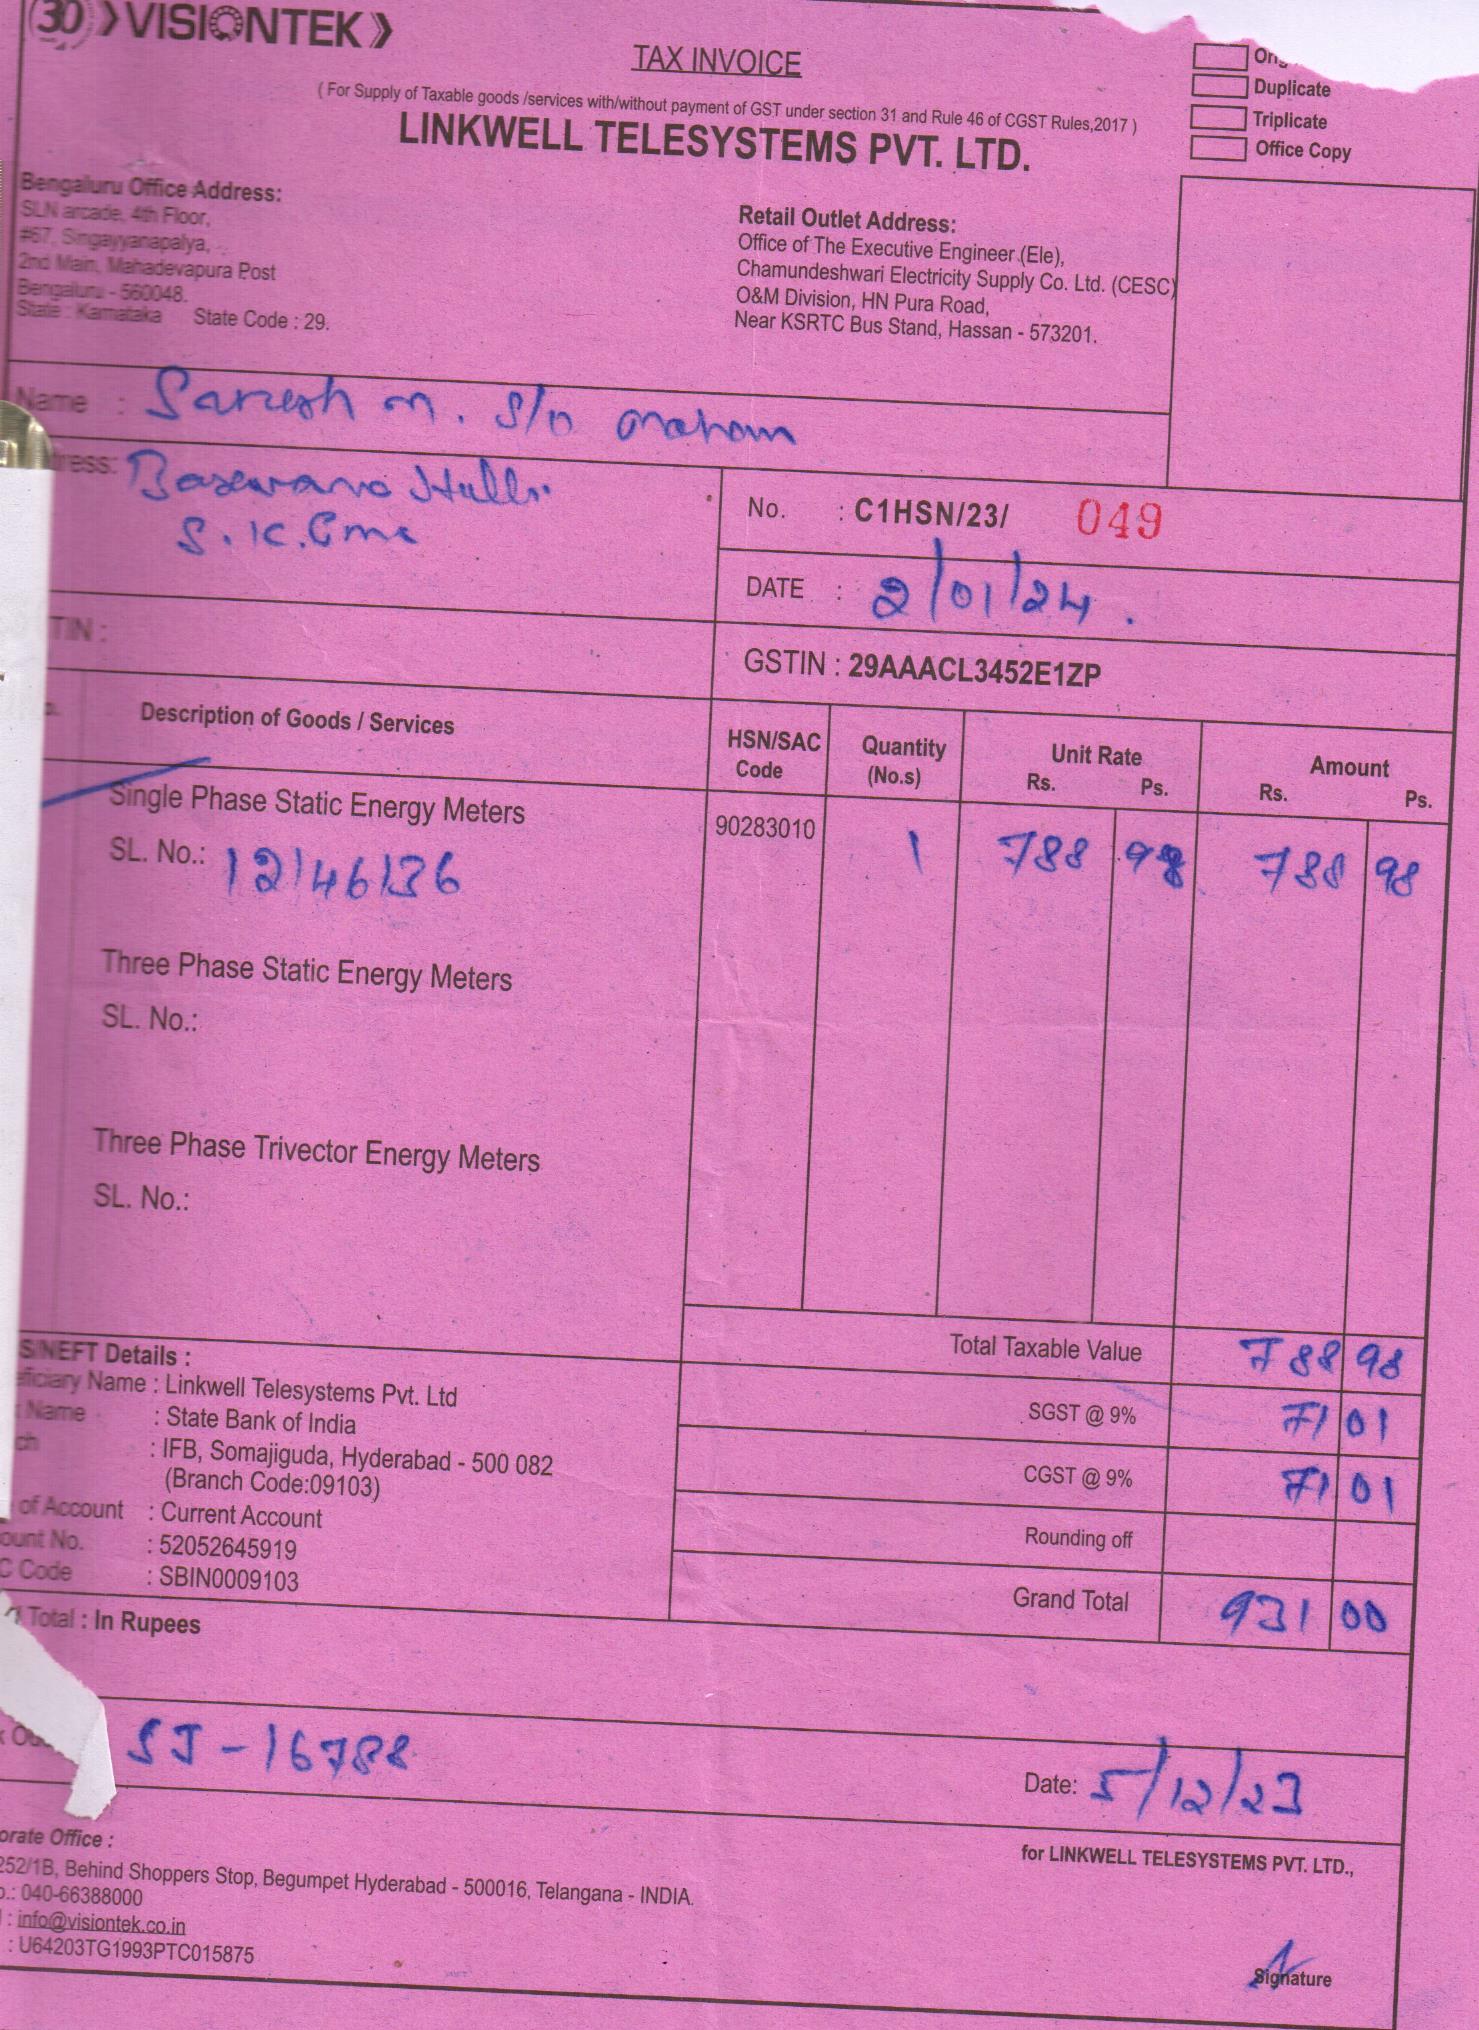 30 VISIONTEK
TAX INVOICE
( For Supply of Taxable goods /services with/without payment of GST under section 31 and Rule 46 of CGST Rules,2017 )
LINKWELL TELESYSTEMS PVT. LTD.
Duplicate
Triplicate
Office Copy
Bengaluru Office Address:
SLN arcade, 4th Floor,
#67, Singayyanapalya,
2nd Main, Mahadevapura Post
Bengaluru - 560048.
State : Karnataka State Code : 29.
Retail Outlet Address:
Office of The Executive Engineer (Ele),
Chamundeshwari Electricity Supply Co. Ltd. (CESC)
O&M Division, HN Pura Road,
Near KSRTC Bus Stand, Hassan - 573201.
Name : M. S/o
ress:
No. : C1HSN/23/ 049
DATE : 2/01/24.
TIN :
GSTIN : 29AAACL3452E1ZP
Description of Goods / Services HSN/SAC Code Quantity (No.s) Unit Rate Rs. Ps. Amount Rs. Ps.
Single Phase Static Energy Meters 90283010 1 788 98 788 98
SL. No.: 12146136
Three Phase Static Energy Meters
SL. No.:
Three Phase Trivector Energy Meters
SL. No.:
Total Taxable Value 788 98
SGST @ 9% 71 01
CGST @ 9% 71 01
Rounding off
Grand Total 931 00
S/NEFT Details :
eficiary Name : Linkwell Telesystems Pvt. Ltd
Name : State Bank of India
ch : IFB, Somajiguda, Hyderabad - 500 082
(Branch Code:09103)
of Account : Current Account
ount No. : 52052645919
C Code : SBIN0009103
Total : In Rupees
SJ-16788
Date: 5/12/23
orate Office :
252/1B, Behind Shoppers Stop, Begumpet Hyderabad - 500016, Telangana - INDIA.
o.: 040-66388000
: info@visiontek.co.in
: U64203TG1993PTC015875
for LINKWELL TELESYSTEMS PVT. LTD.,
Signature